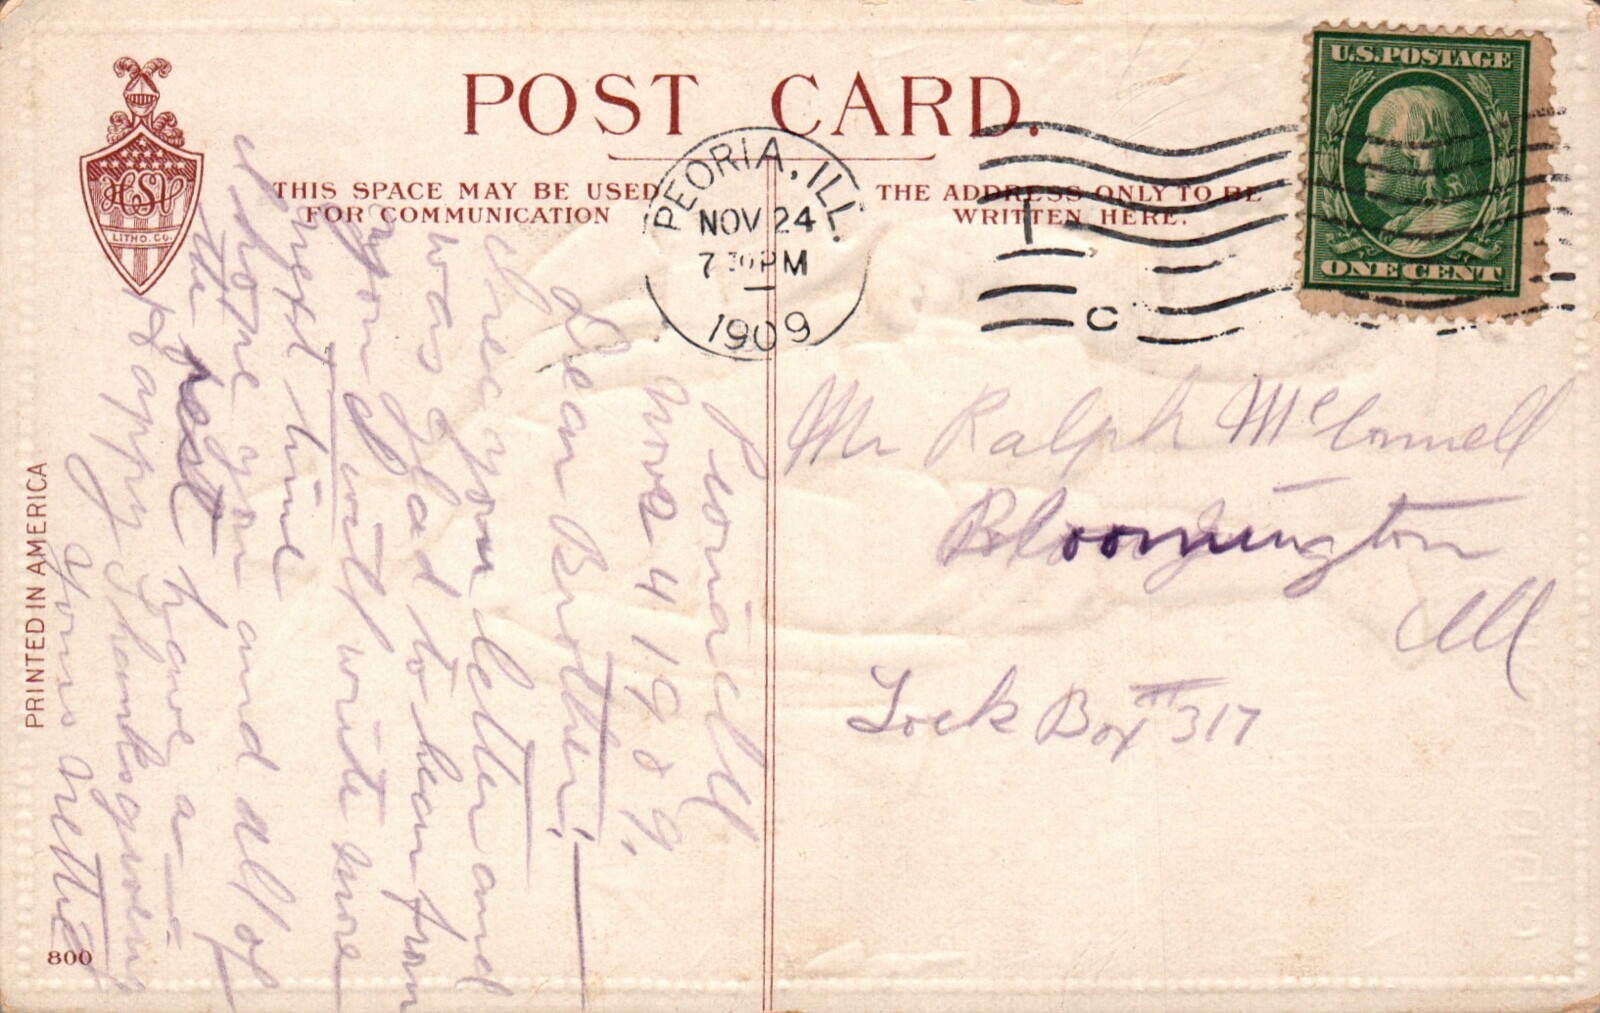 POST CARD.
THIS SPACE MAY BE USED
FOR COMMUNICATION
THE ADDRESS ONLY TO BE
WRITTEN HERE.
HSV
LITHO. CO.
PEORIA, ILL.
NOV 24
7 30 PM
1909
C
U.S. POSTAGE
ONE CENT
Mr Ralph McConnell
Bloomington
Ill
Lock Box # 317
Peoria Ill
Nov 24 1909.
Dear Brother;
rec your letter and
was glad to hear from
you will write more
next time
I hope you and all of
the rest have a
Happy Thanksgiving
Yours Nettie
PRINTED IN AMERICA
800